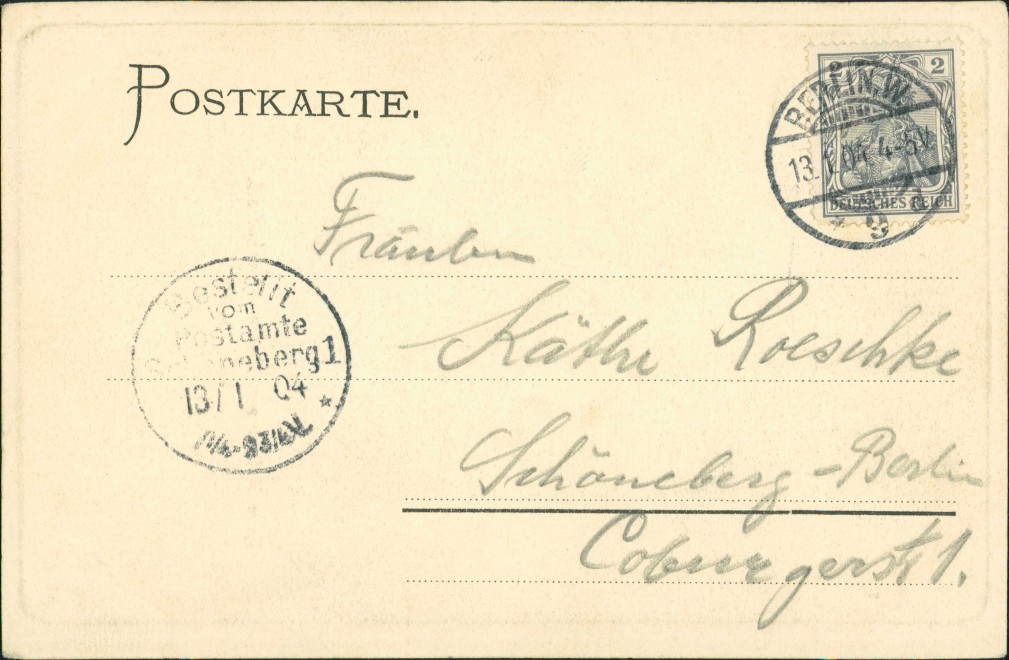 POSTKARTE.
2 2
BERLIN. W.
13. 1. 04. 4-5V.
DEUTSCHES REICH
9
Fräulein
Käthe Roeschke
Schöneberg-Berlin
Coburgerstr 1.
Bestellt
vom
Postamte
Schöneberg 1
13/1 04